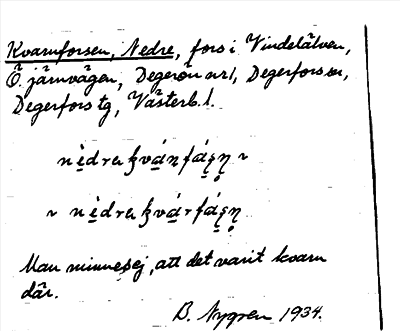 Kvarnforsen, Nedre, fors i Vindelälven,
Ö. järnvägen, Degerön nr 1, Degerfors sn,
Degerfors tg, Västerb. l.
nèdra kvánfásn ~
~ nèdra kvárfásn
Man minnes ej, att det varit kvarn
där.
B. Nygren 1934.